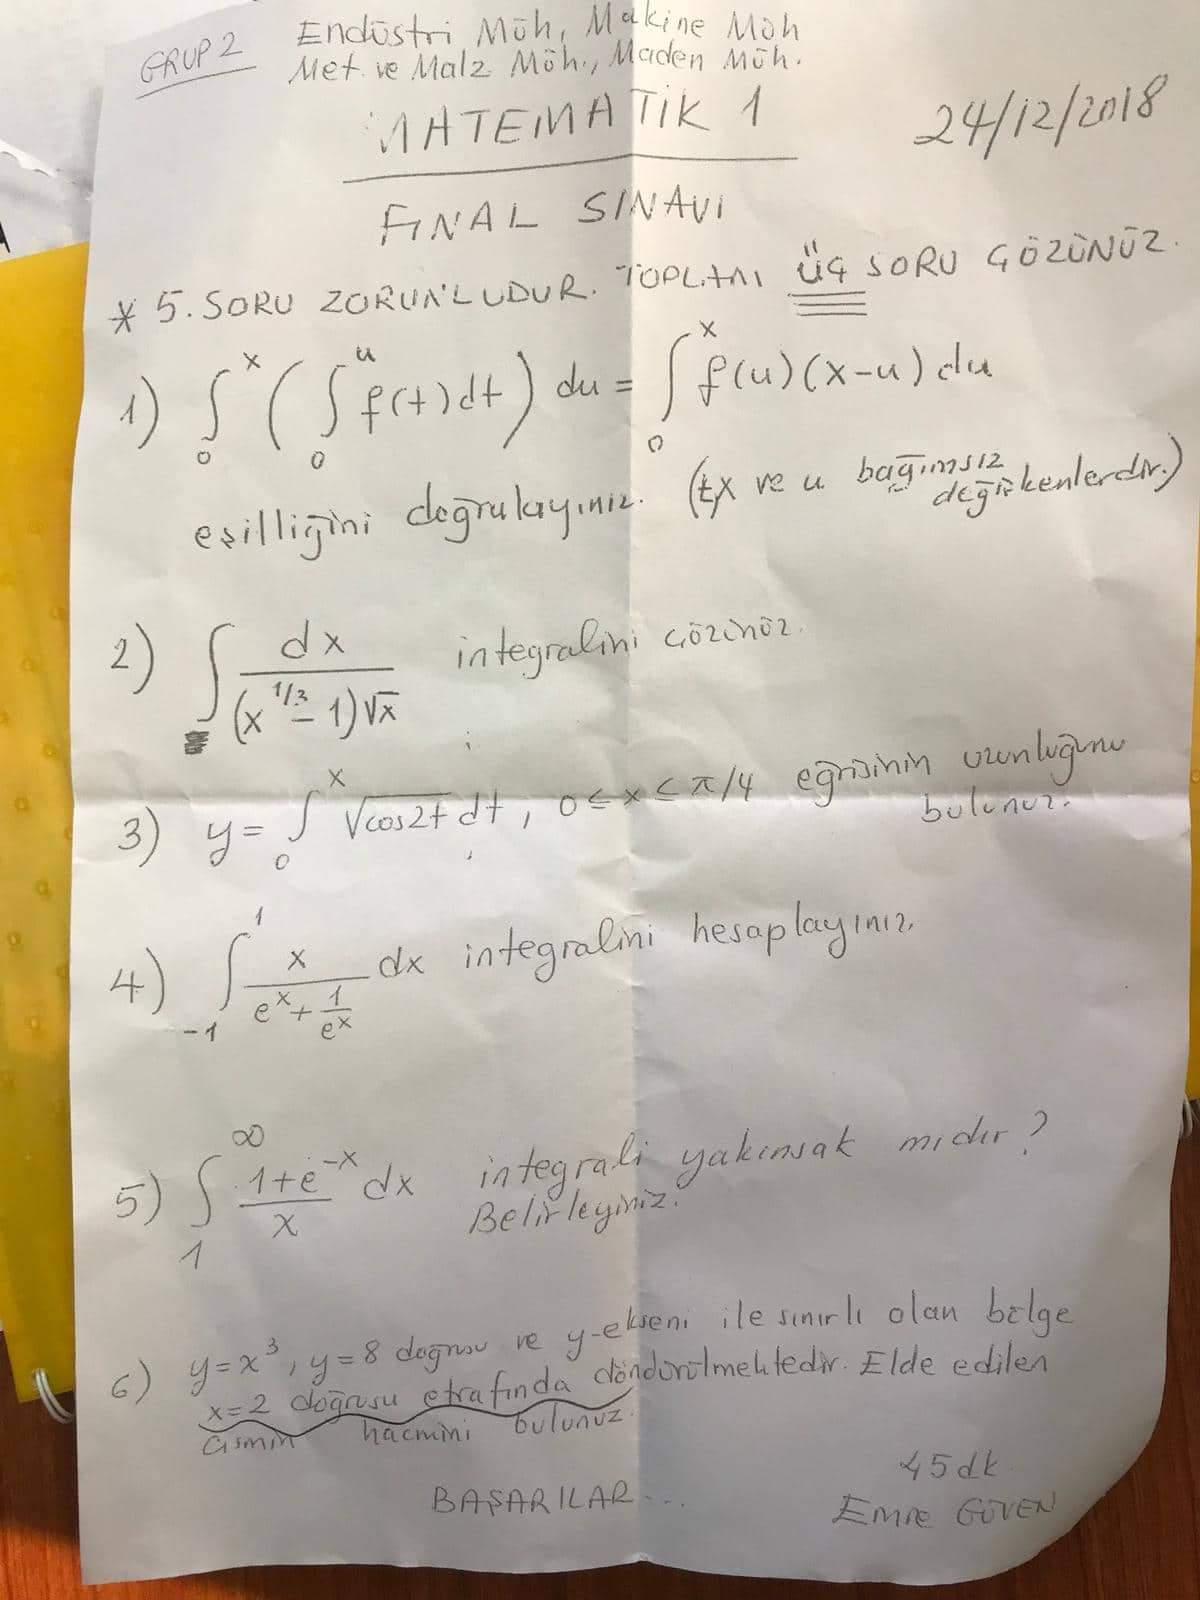 GRUP 2
Endüstri Müh, Makine Müh
Met. ve Malz Müh., Maden Müh.
MATEMATİK 1
24/12/2018
FİNAL SINAVI
* 5. SORU ZORUNLUDUR. TOPLAM ÜÇ SORU ÇÖZÜNÜZ.
1) ∫₀ˣ ( ∫₀ᵘ f(t)dt ) du = ∫₀ˣ f(u)(x-u) du
eşilliğini doğrulayınız. (t,x ve u bağımsız değişkenlerdir.)
2) ∫ dx / (x^1/3 - 1)√x integralini çözünüz.
3) y = ∫₀ˣ √cos2t dt, 0≤x≤π/4 eğrisinin uzunluğunu bulunuz.
4) ∫₋₁¹ x / (eˣ + 1/eˣ) dx integralini hesaplayınız.
5) ∫₁^∞ (1+e^-x) / x dx integrali yakınsak mıdır?
Belirleyiniz.
6) y=x³, y=8 doğrusu ve y-ekseni ile sınırlı olan bölge
x=2 doğrusu etrafında döndürülmektedir. Elde edilen
cismin hacmini bulunuz.
BAŞARILAR...
45dk
Emre GÜVEN